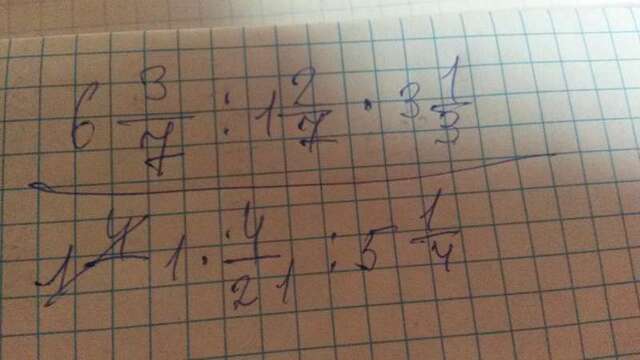 6 3/7 : 1 2/7 · 3 1/3
1 · 4/21 : 5 1/4